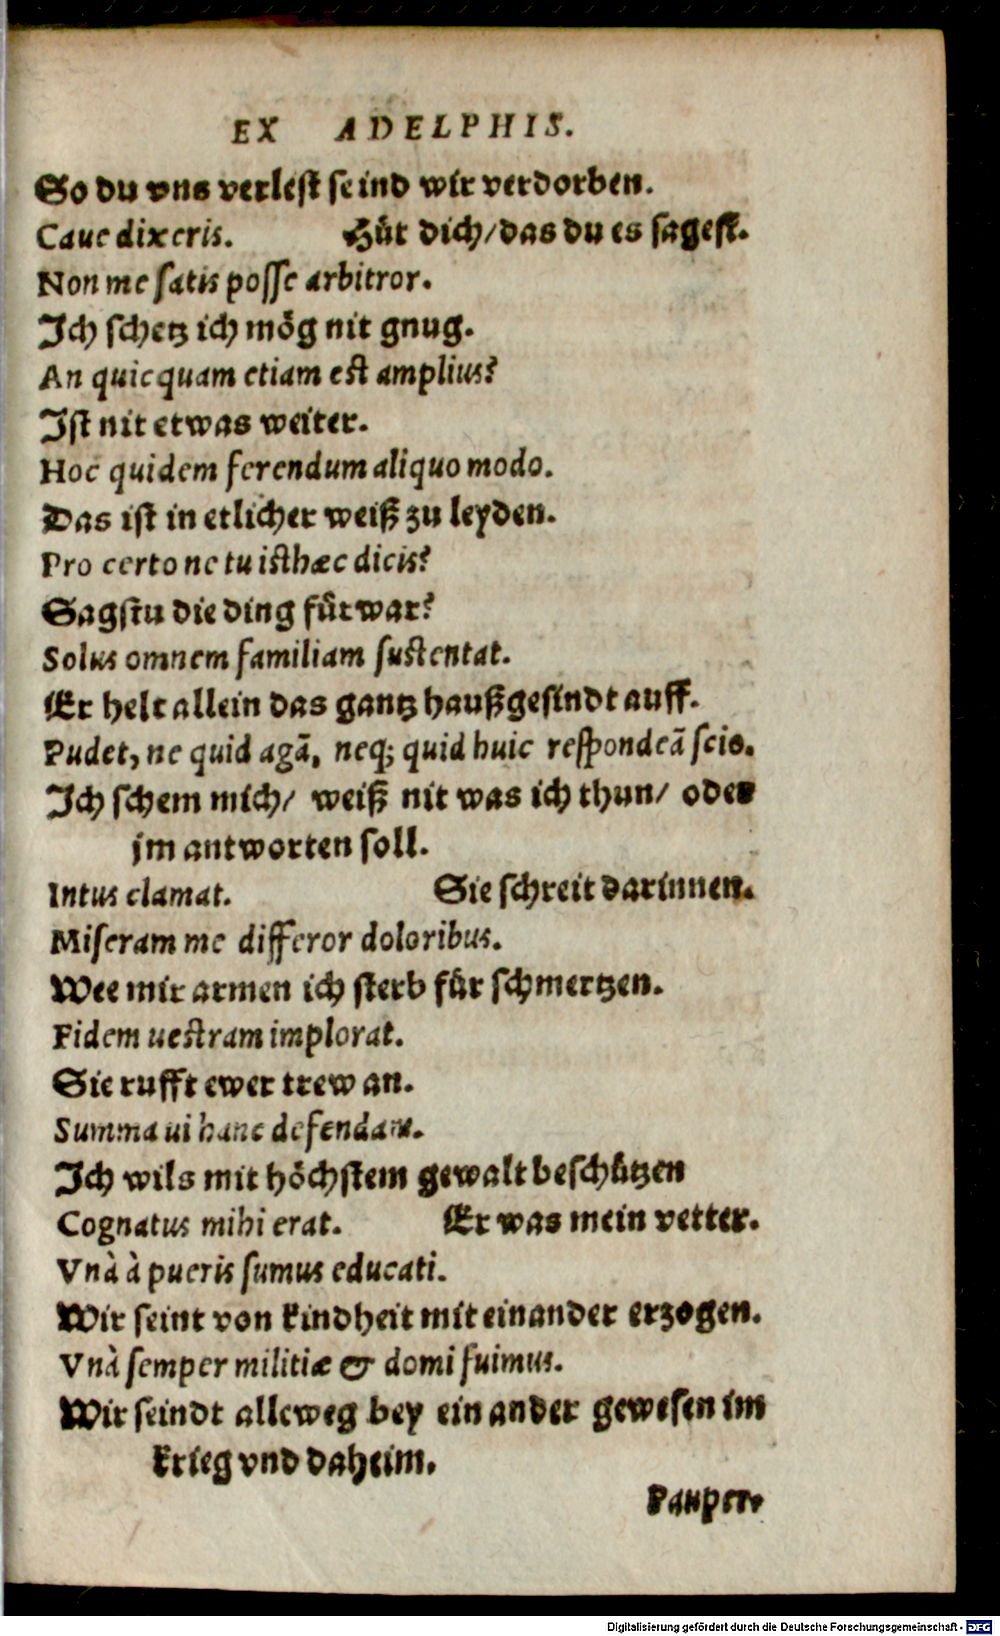 EX ADELPHIS.
So du vns verlest seind wir verdorben.
Caue dixeris. Hüt dich/das du es sagest.
Non me satis posse arbitror.
Ich schetz ich mög nit gnug.
An quicquam etiam est amplius?
Ist nit etwas weiter.
Hoc quidem ferendum aliquo modo.
Das ist in etlicher weiß zu leyden.
Pro certo ne tu isthæc dicis?
Sagstu die ding fürwar?
Solus omnem familiam sustentat.
Er helt allein das gantz haußgesindt auff.
Pudet, ne quid agã, neq; quid huic respondeã scio.
Ich schem mich/ weiß nit was ich thun/ oder
jm antworten soll.
Intus clamat. Sie schreit darinnen.
Miseram me differor doloribus.
Wee mir armen ich sterb für schmertzen.
Fidem uestram implorat.
Sie rufft ewer trew an.
Summa ui hanc defendam.
Ich wils mit höchstem gewalt beschützen
Cognatus mihi erat. Er was mein vetter.
Vnà à pueris sumus educati.
Wir seint von kindheit mit einander erzogen.
Vnà semper militiæ & domi fuimus.
Wir seindt alleweg bey ein ander gewesen im
krieg vnd daheim.
Pauper.
Digitalisierung gefördert durch die Deutsche Forschungsgemeinschaft - DFG